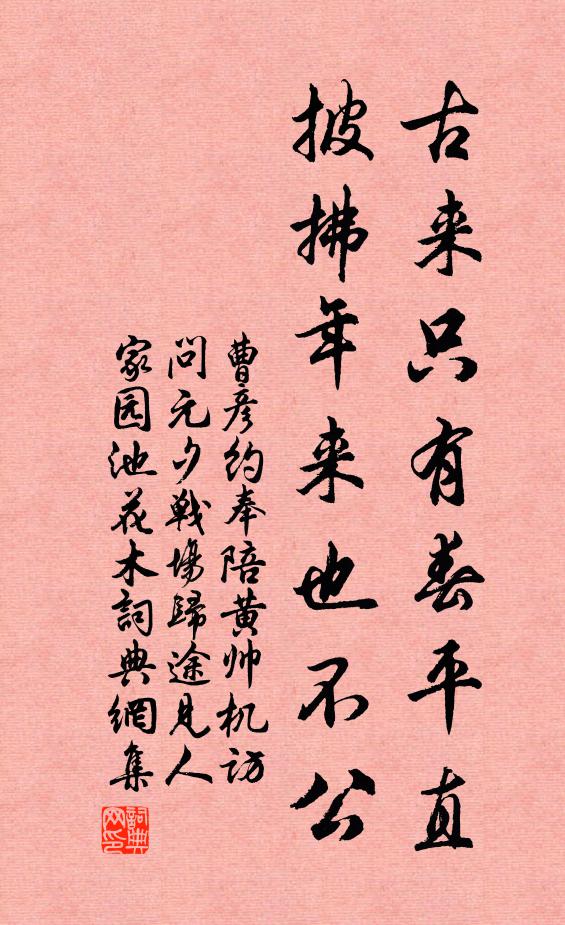 古来只有春平直
披拂年来也不公
曹彦约奉陪黄帅机访
问元夕戰場歸途见人
家园池花木詞典網集
詞典网印